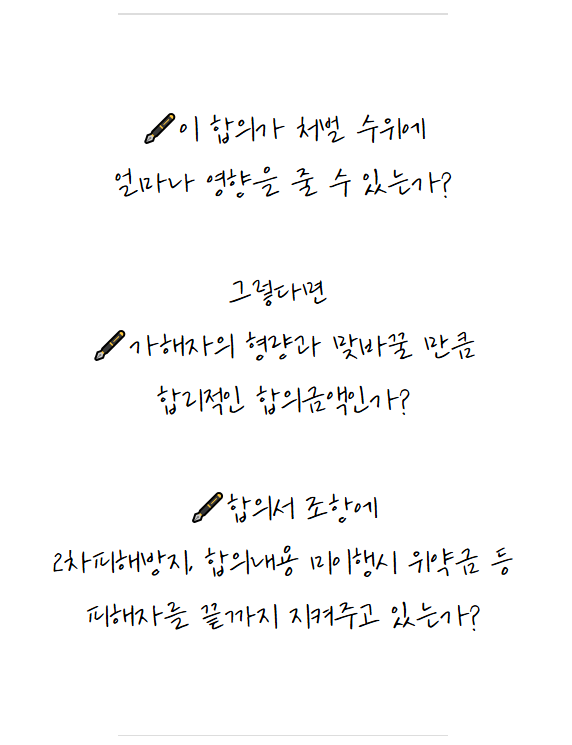 이 합의가 처벌 수위에
얼마나 영향을 줄 수 있는가?
그렇다면
가해자의 형량과 맞바꿀 만큼
합리적인 합의금액인가?
합의서 조항에
2차피해방지, 합의내용 미이행시 위약금 등
피해자를 끝까지 지켜주고 있는가?